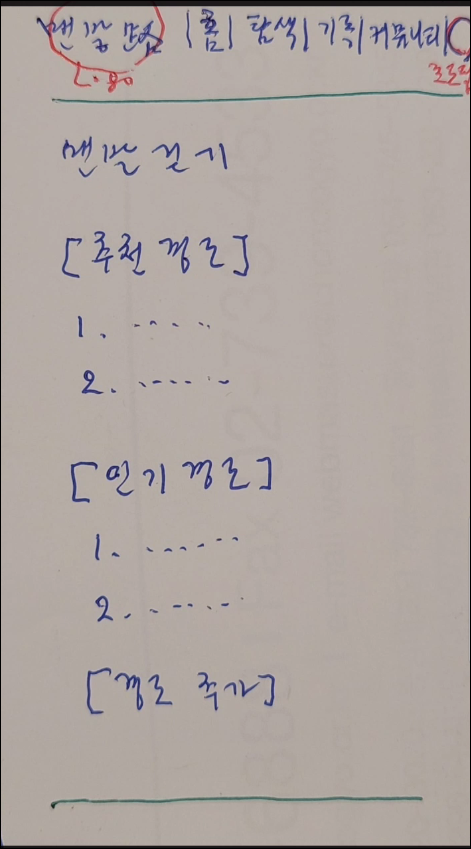 맨발 | 홈 | 탐색 | 기록 | 커뮤니티 |
로고
프로필
맨발 걷기
[추천 경로]
1. .....
2. ......
[인기 경로]
1. ......
2. ......
[경로 추가]